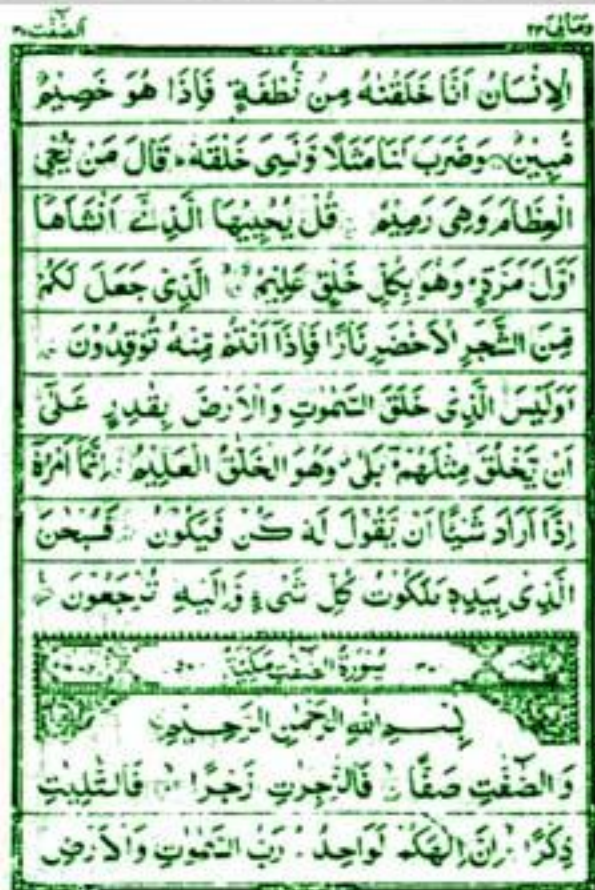 وَمَالِیَ ٢٣ اَلصّٰٓفّٰت ٣٧
الْاِنْسَانُ اَنَّا خَلَقْنٰهُ مِنْ نُّطْفَةٍ فَاِذَا هُوَ خَصِیْمٌ
مُّبِیْنٌ وَضَرَبَ لَنَا مَثَلًا وَّنَسِیَ خَلْقَهٗ قَالَ مَنْ یُّحْیِ
الْعِظَامَ وَهِیَ رَمِیْمٌ قُلْ یُحْیِیْهَا الَّذِیْۤ اَنْشَاَهَاۤ
اَوَّلَ مَرَّةٍ وَهُوَ بِكُلِّ خَلْقٍ عَلِیْمٌ الَّذِیْ جَعَلَ لَكُمْ
مِّنَ الشَّجَرِ الْاَخْضَرِ نَارًا فَاِذَاۤ اَنْتُمْ مِّنْهُ تُوْقِدُوْنَ
اَوَلَیْسَ الَّذِیْ خَلَقَ السَّمٰوٰتِ وَالْاَرْضَ بِقٰدِرٍ عَلٰۤی
اَنْ یَّخْلُقَ مِثْلَهُمْ بَلٰی وَهُوَ الْخَلّٰقُ الْعَلِیْمُ اِنَّمَاۤ اَمْرُهٗۤ
اِذَاۤ اَرَادَ شَیْئًا اَنْ یَّقُوْلَ لَهٗ كُنْ فَیَكُوْنُ فَسُبْحٰنَ
الَّذِیْ بِیَدِهٖ مَلَكُوْتُ كُلِّ شَیْءٍ وَّاِلَیْهِ تُرْجَعُوْنَ
سُوْرَةُ الصّٰٓفّٰتِ مَكِّیَّةٌ
بِسْمِ اللّٰهِ الرَّحْمٰنِ الرَّحِیْمِ
وَالصّٰٓفّٰتِ صَفًّا فَالزّٰجِرٰتِ زَجْرًا فَالتّٰلِیٰتِ
ذِكْرًا اِنَّ اِلٰهَكُمْ لَوَاحِدٌ رَبُّ السَّمٰوٰتِ وَالْاَرْضِ